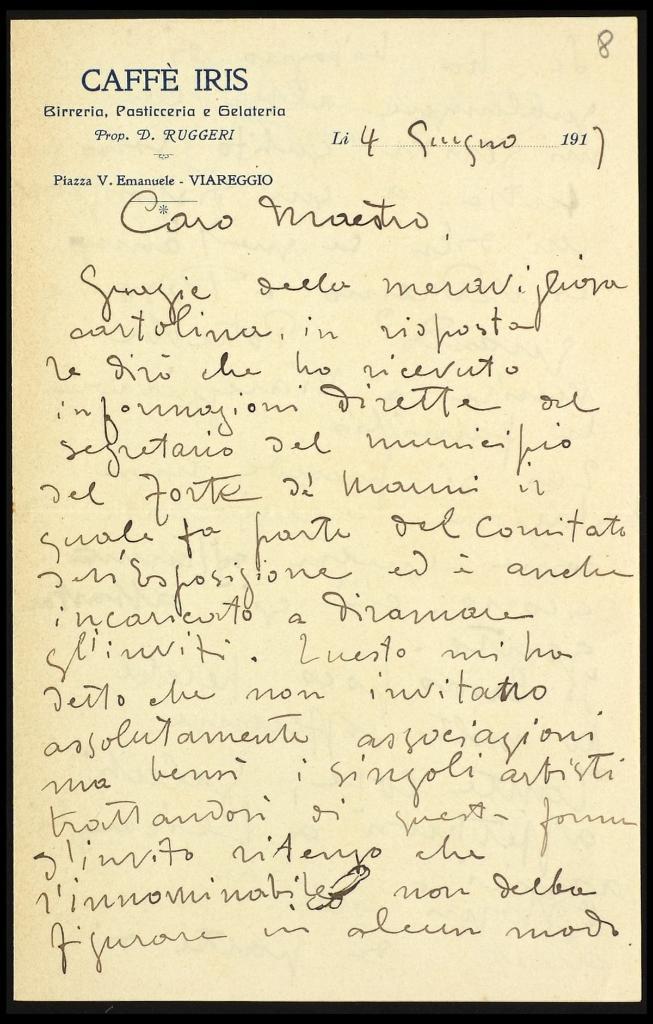 8
CAFFÈ IRIS
Birreria, Pasticceria e Gelateria
Prop. D. RUGGERI
Piazza V. Emanuele - VIAREGGIO
Li 4 Giugno 1917
Caro Maestro,
Grazie della meravigliosa
cartolina, in risposta
le dirò che ho ricevuto
informazioni dirette dal
segretario del municipio
del Forte dei Marmi il
quale fa parte del Comitato
dell'Esposizione ed è anche
incaricato a diramare
gl'inviti. Questo mi ha
detto che non invitano
assolutamente associazioni
ma bensì i singoli artisti
trattandosi di questa forma
d'invito ritengo che
l'innominabile non debba
figurare in alcun modo.